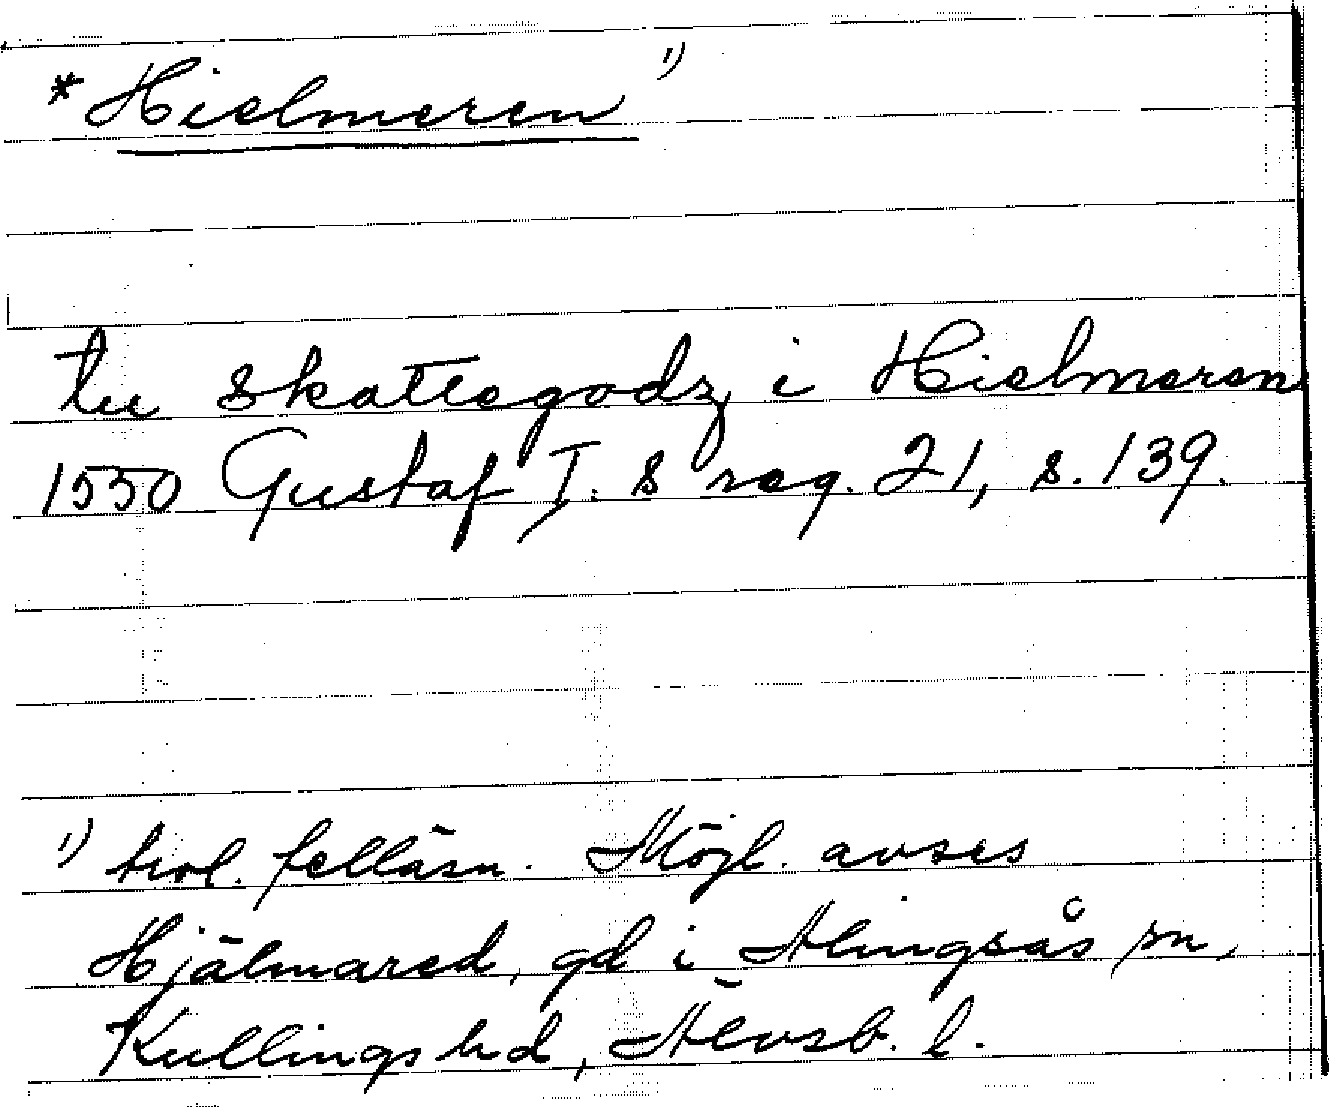 *Hielmeren 1)
tu skattegodz i Hielmeren
1550 Gustaf I. s reg. 21, s. 139.
1) trol. felläsn. Möjl. avses
Hjälmared, gd i Alingsås sn,
Kullings hd, Älvsb. l.